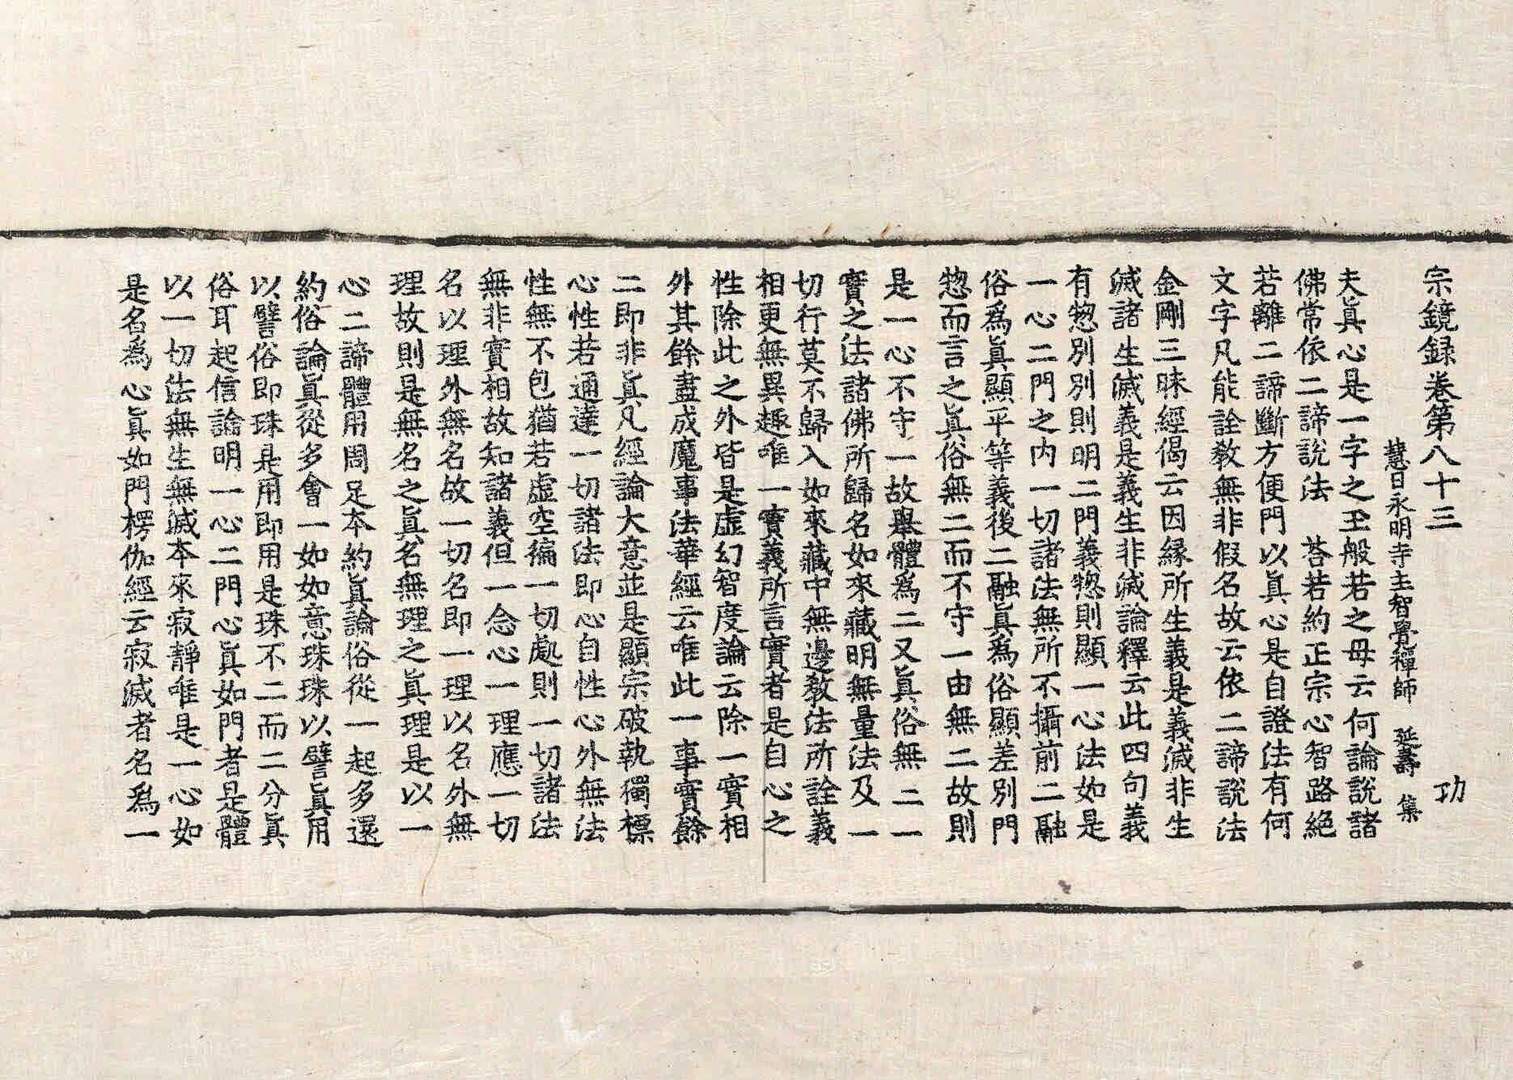 宗鏡録巻第八十三　功
慧日永明寺主智覺禪師　延壽　集
夫真心是一字之王般若之母云何論說諸
佛常依二諦說法　荅若約正宗心智路絕
若離二諦斷方便門以真心是自證法有何
文字凡能詮教無非假名故云依二諦說法
金剛三昧經偈云因緣所生義是義滅非生
滅諸生滅義是義生非滅論釋云此四句義
有惣別別則明二門義惣則顯一心法如是
一心二門之內一切諸法無所不攝前二融
俗為真顯平等義後二融真為俗顯差別門
惣而言之真俗無二而不守一由無二故則
是一心不守一故舉體為二又真俗無二一
實之法諸佛所歸名如來藏明無量法及一
切行莫不歸入如來藏中無邊教法所詮義
相更無異趣唯一實義所言實者是自心之
性除此之外皆是虛幻智度論云除一實相
外其餘盡成魔事法華經云唯此一事實餘
二即非真凡經論大意並是顯宗破執獨標
心性若通達一切諸法即心自性心外無法
性無不包猶若虛空徧一切處則一切諸法
無非實相故知諸義但一念心一理應一切
名以理外無名故一切名即一理以名外無
理故則是無名之真名無理之真理是以一
心二諦體用周足本約真論俗從一起多還
約俗論真從多會一如如意珠珠以譬真用
以譬俗即珠是用即用是珠不二而二分真
俗耳起信論明一心二門心真如門者是體
以一切法無生無滅本來寂靜唯是一心如
是名為心真如門楞伽經云寂滅者名為一